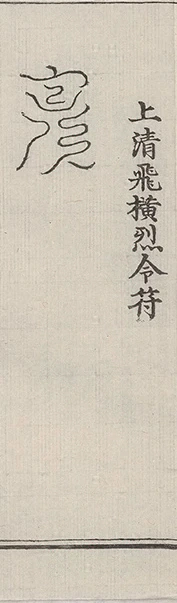 上清飛橫烈令符